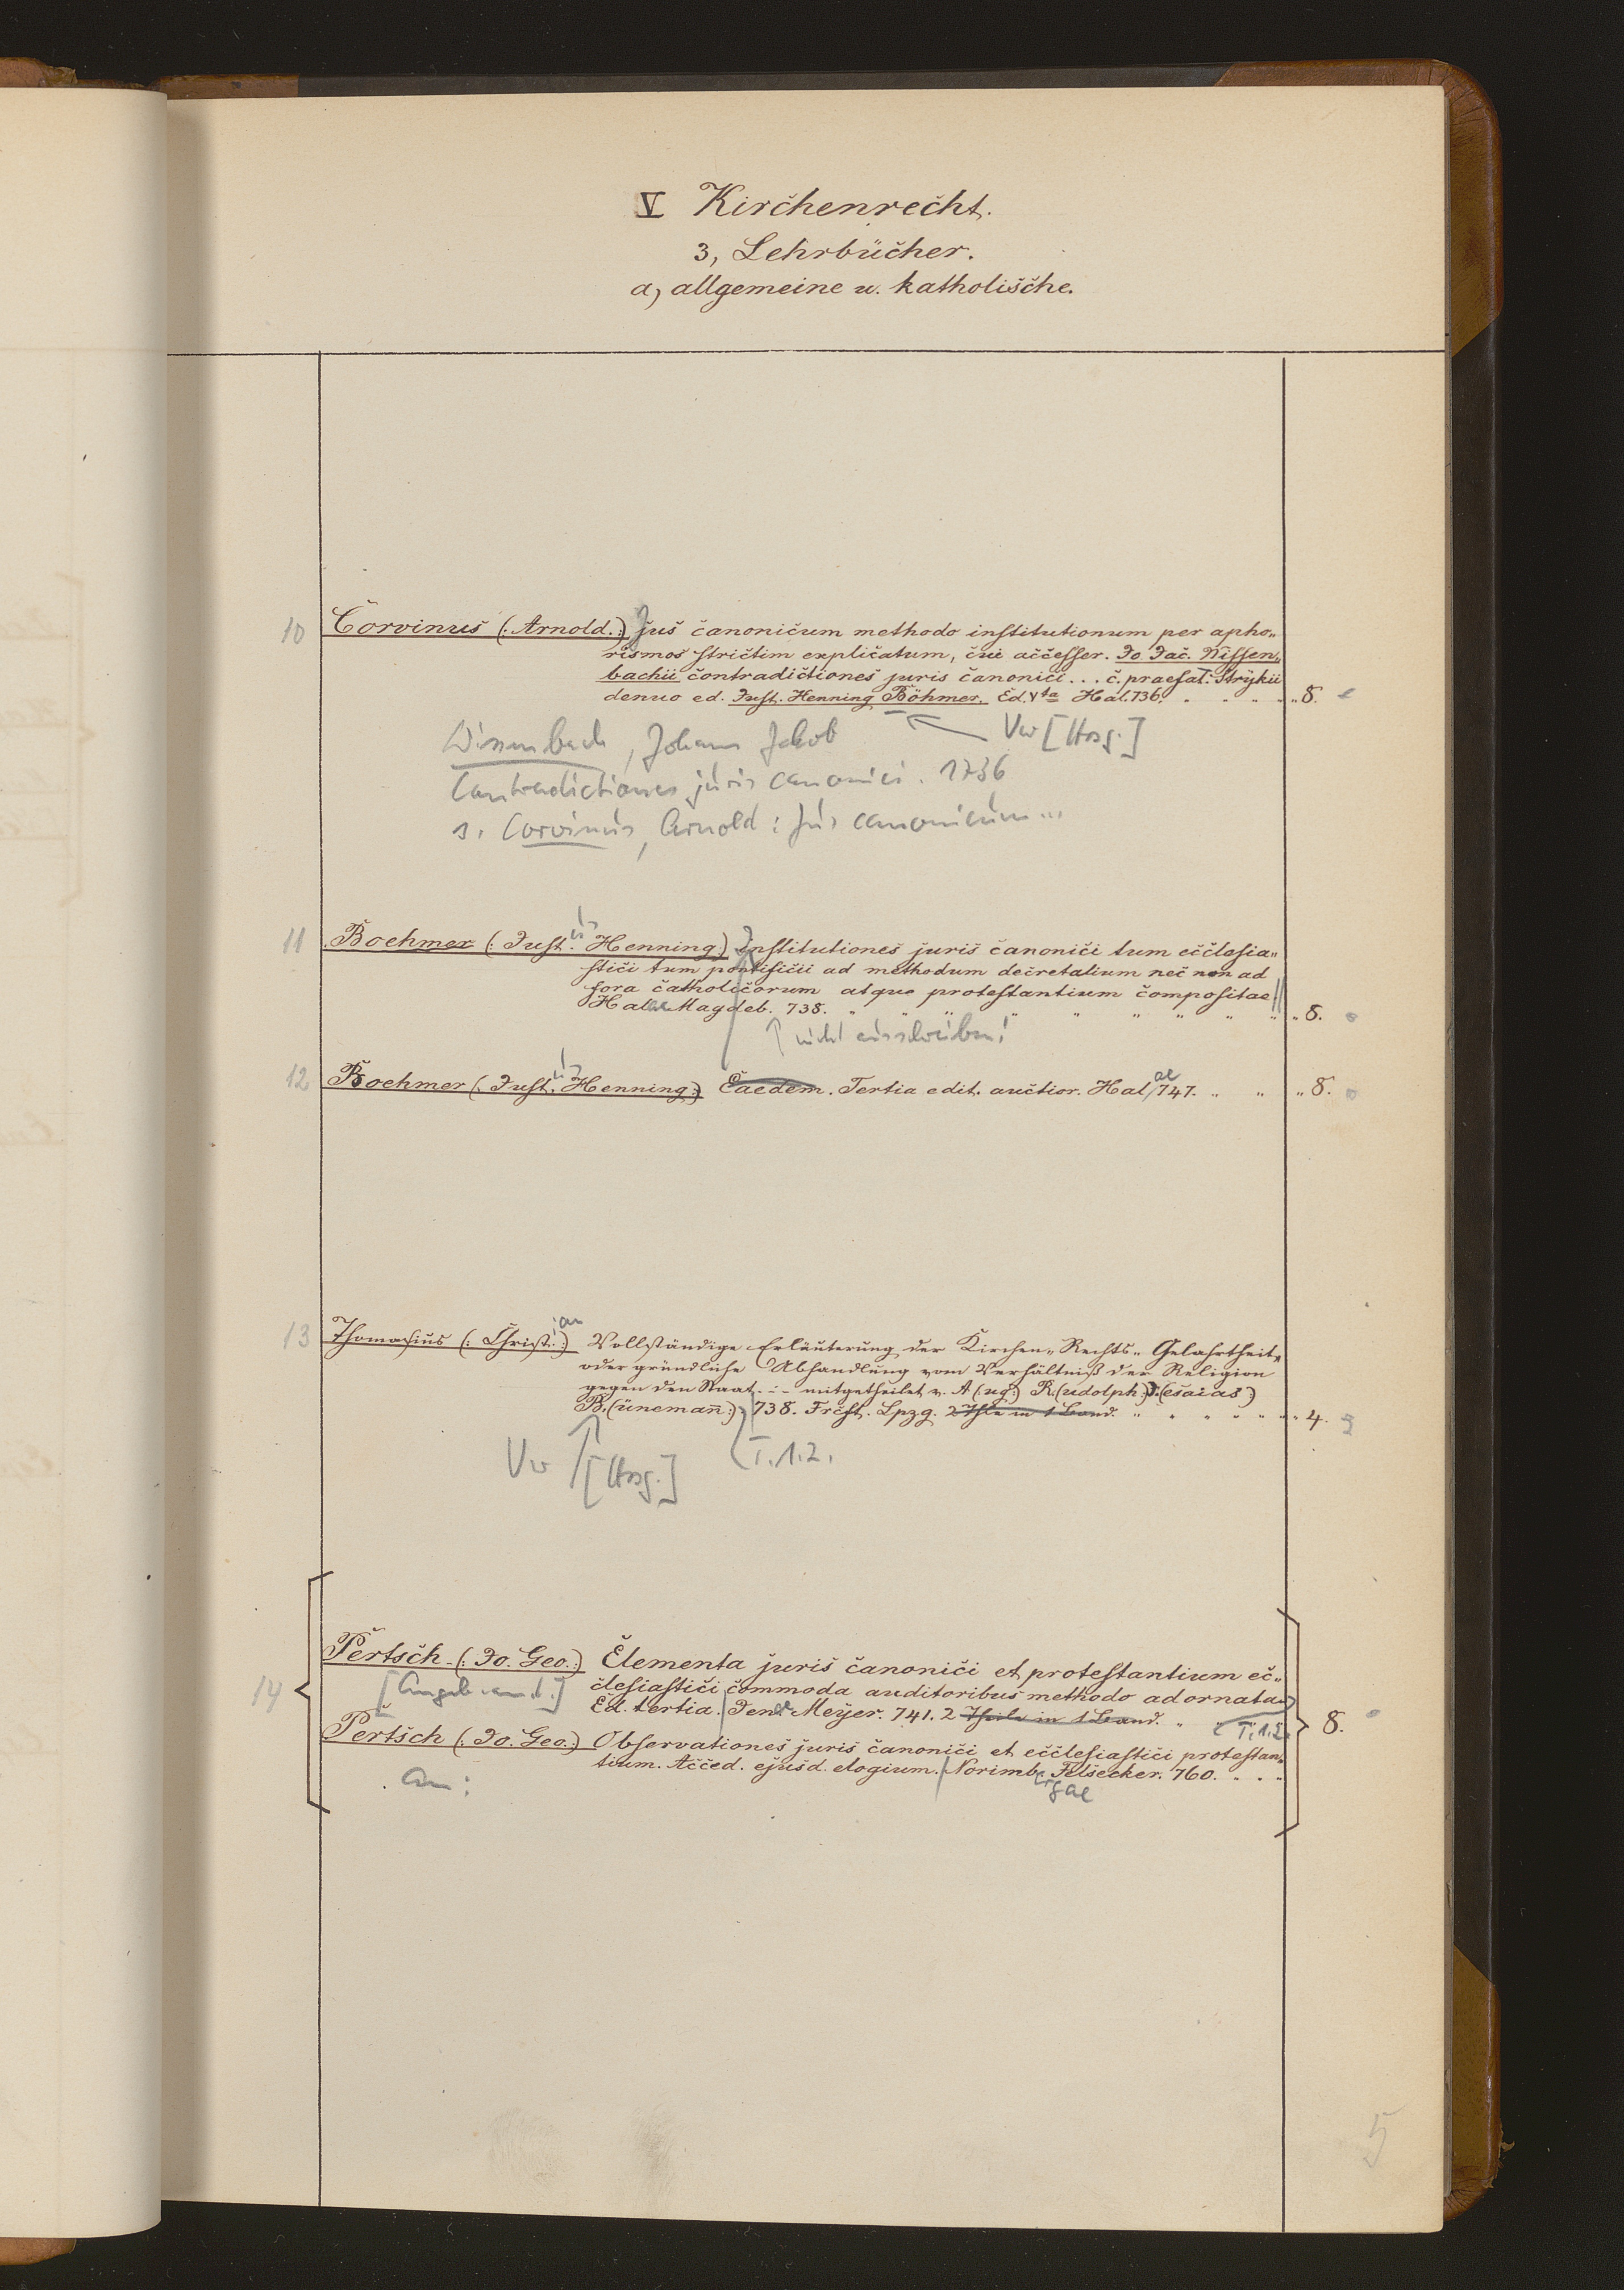 V Kirchenrecht.
3, Lehrbücher.
a) allgemeine u. katholische.
10 Corvinus (: Arnold.:) Jus canonicum methodo institutionum per apho„
rismos strictim explicatum, cui accesser. Jo. Jac. Wissen„
bachii contradictiones juris canonici... c. praefat. Strykii
denuo ed. Just. Henning Böhmer. Ed. Vta Hal. 736. „ 8.
Vw [Hrsg.]
Wissenbach, Johann Jakob
Contradictiones juris canonici. 1736
s. Corvinus, Arnold: Jus canonicum...
11 Boehmer (: Just. Henning:) Institutiones juris canonici tum ecclesia„
stici tum pontificii ad methodum decretalium nec non ad
fora catholicorum atque protestantium compositae
Halae Magdeb. 738. „ „ „ „ „ „ „ „ 8.
↑ nicht einschreiben!
12 Boehmer (: Just. Henning:) Eaedem. Tertia edit. auctior. Halae 747. „ „ „ 8.
13 Thomasius (: Christ.:)ian Vollständige Erläuterung der Kirchen„Rechts„Gelahrtheit
oder gründliche Abhandlung vom Verhältniß der Religion
gegen den Staat - - - mitgetheilet v. A(ug.) R.(udolph.) J.(esaias)
B.(ünemann:) 738. Frcft. Lpzg. 2 Thle in 1 Band. „ „ „ „ „ 4.
Vw [Hrsg.] T. 1.2.
14 Pertsch (: Jo. Geo.:) Elementa juris canonici et protestantium ec„
clesiastici commoda auditoribus methodo adornata
[Angeb. an.1.]
Ed. tertia. Jenae Meyer. 741. 2 Theile in 1 Band. „ T. 1.2. 8.
Pertsch (: Jo. Geo.:) Observationes juris canonici et ecclesiastici protestan„
tium. Acced. ejusd. elogium. Norimb. Felsecker. 760. . . .
An: ergae
5